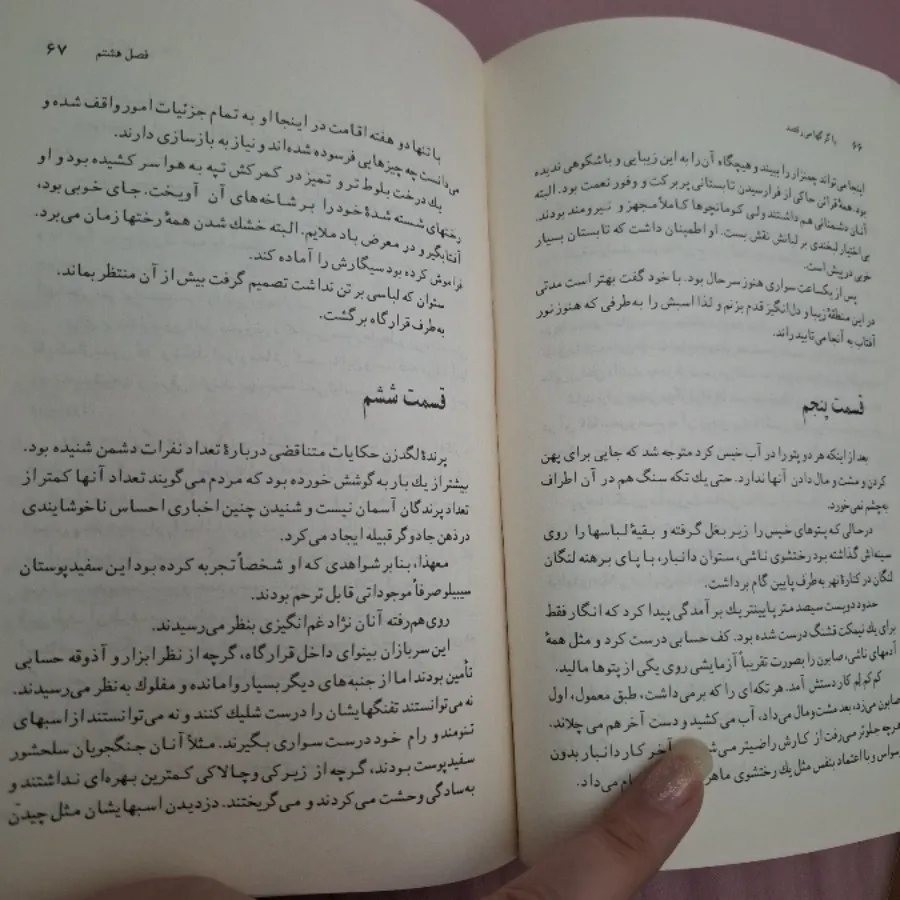 ۶۶ با گرگها می‌رقصد
اینجا می‌تواند چمنزار را ببیند و هیچگاه آن را به این زیبایی و باشکوهی ندیده
بود همهٔ قرائن حاکی از فرارسیدن تابستانی پر برکت و وفور نعمت بود. البته
آنان دشمنانی هم داشتند ولی کومانچوها کاملاً مجهز و نیرومند بودند.
بی‌اختیار لبخندی بر لبانش نقش بست. او اطمینان داشت که تابستان بسیار
خوبی در پیش است.
پس از یکساعت سواری هنوز سر حال بود. با خود گفت بهتر است مدتی
در این منطقهٔ زیبا و دل‌انگیز قدم بزنم و لذا اسبش را به‌طرفی که هنوز نور
آفتاب به آنجا می‌تابید راند.
قسمت پنجم
بعد از اینکه هر دو پتو را در آب خیس کرد متوجه شد که جایی برای پهن
کردن و مشت و مال دادن آنها ندارد. حتی یك تکه سنگ هم در آن اطراف
به‌چشم نمی‌خورد.
درحالی که پتوهای خیس را زیر بغل گرفته و بقیهٔ لباسها را روی
سینه‌اش گذاشته بود رختشوی ناشی، ستوان دانبار، با پای برهنه لنگان
لنگان در کنارهٔ نهر به‌طرف پایین گام برداشت.
حدود دویست سیصد متر پایینتر یك برآمدگی پیدا کرد که انگار فقط
برای یك نیمکت قشنگ درست شده بود. کف حسابی درست کرد و مثل همهٔ
آدمهای ناشی، صابون را بصورت تقریباً آزمایشی روی یکی از پتوها مالید.
کم‌کم لِم کار دستش آمد. هر تکه‌ای را که برمی‌داشت، طبق معمول، اول
صابون می‌زد، بعد مشت و مال می‌داد، آب می‌کشید و دست آخر هم می‌چلاند.
هرچه جلوتر می‌رفت از کارش راضیتر می‌شد آخر کار دانبار بدون
وسواس و با اعتماد بنفس مثل یك رختشوی ماهر می‌داد.
فصل هشتم ۶۷
با تنها دو هفته اقامت در اینجا او به تمام جزئیات امور واقف شده و
می‌دانست چه چیزهایی فرسوده شده‌اند و نیاز به بازسازی دارند.
یك درخت بلوط تر و تمیز در کمرکش تپه به هوا سر کشیده بود و او
رختهای شسته شدهٔ خود را بر شاخه‌های آن آویخت. جای خوبی بود،
آفتابگیر و در معرض باد ملایم. البته خشك شدن همهٔ رختها زمان می‌برد.
فراموش کرده بود سیگارش را آماده کند.
ستوان که لباسی بر تن نداشت تصمیم گرفت بیش از آن منتظر بماند.
به‌طرف قرارگاه برگشت.
قسمت ششم
پرندهٔ لگدزن حکایات متناقضی دربارهٔ تعداد نفرات دشمن شنیده بود.
بیشتر از یك بار به گوشش خورده بود که مردم می‌گویند تعداد آنها کمتر از
تعداد پرندگان آسمان نیست و شنیدن چنین اخباری احساس ناخوشایندی
در ذهن جادوگر قبیله ایجاد می‌کرد.
معهذا، بنابر شواهدی که او شخصاً تجربه کرده بود این سفیدپوستان
سبیلو صرفاً موجوداتی قابل ترحم بودند.
روی‌هم‌رفته آنان نژاد غم‌انگیزی بنظر می‌رسیدند.
این سربازان بینوای داخل قرارگاه، گرچه از نظر ابزار و آذوقه حسابی
تأمین بودند اما از جنبه‌های دیگر بسیار وامانده و مفلوك به‌نظر می‌رسیدند.
نه می‌توانستند تفنگهایشان را درست شلیك کنند و نه می‌توانستند از اسبهای
تنومند و رام خود درست سواری بگیرند. مثلاً آنان جنگجویان سلحشور
سفیدپوست بودند، گرچه از زیرکی و چالاکی کمترین بهره‌ای نداشتند و
به‌سادگی وحشت می‌کردند و می‌گریختند. دزدیدن اسبهایشان مثل چیدن